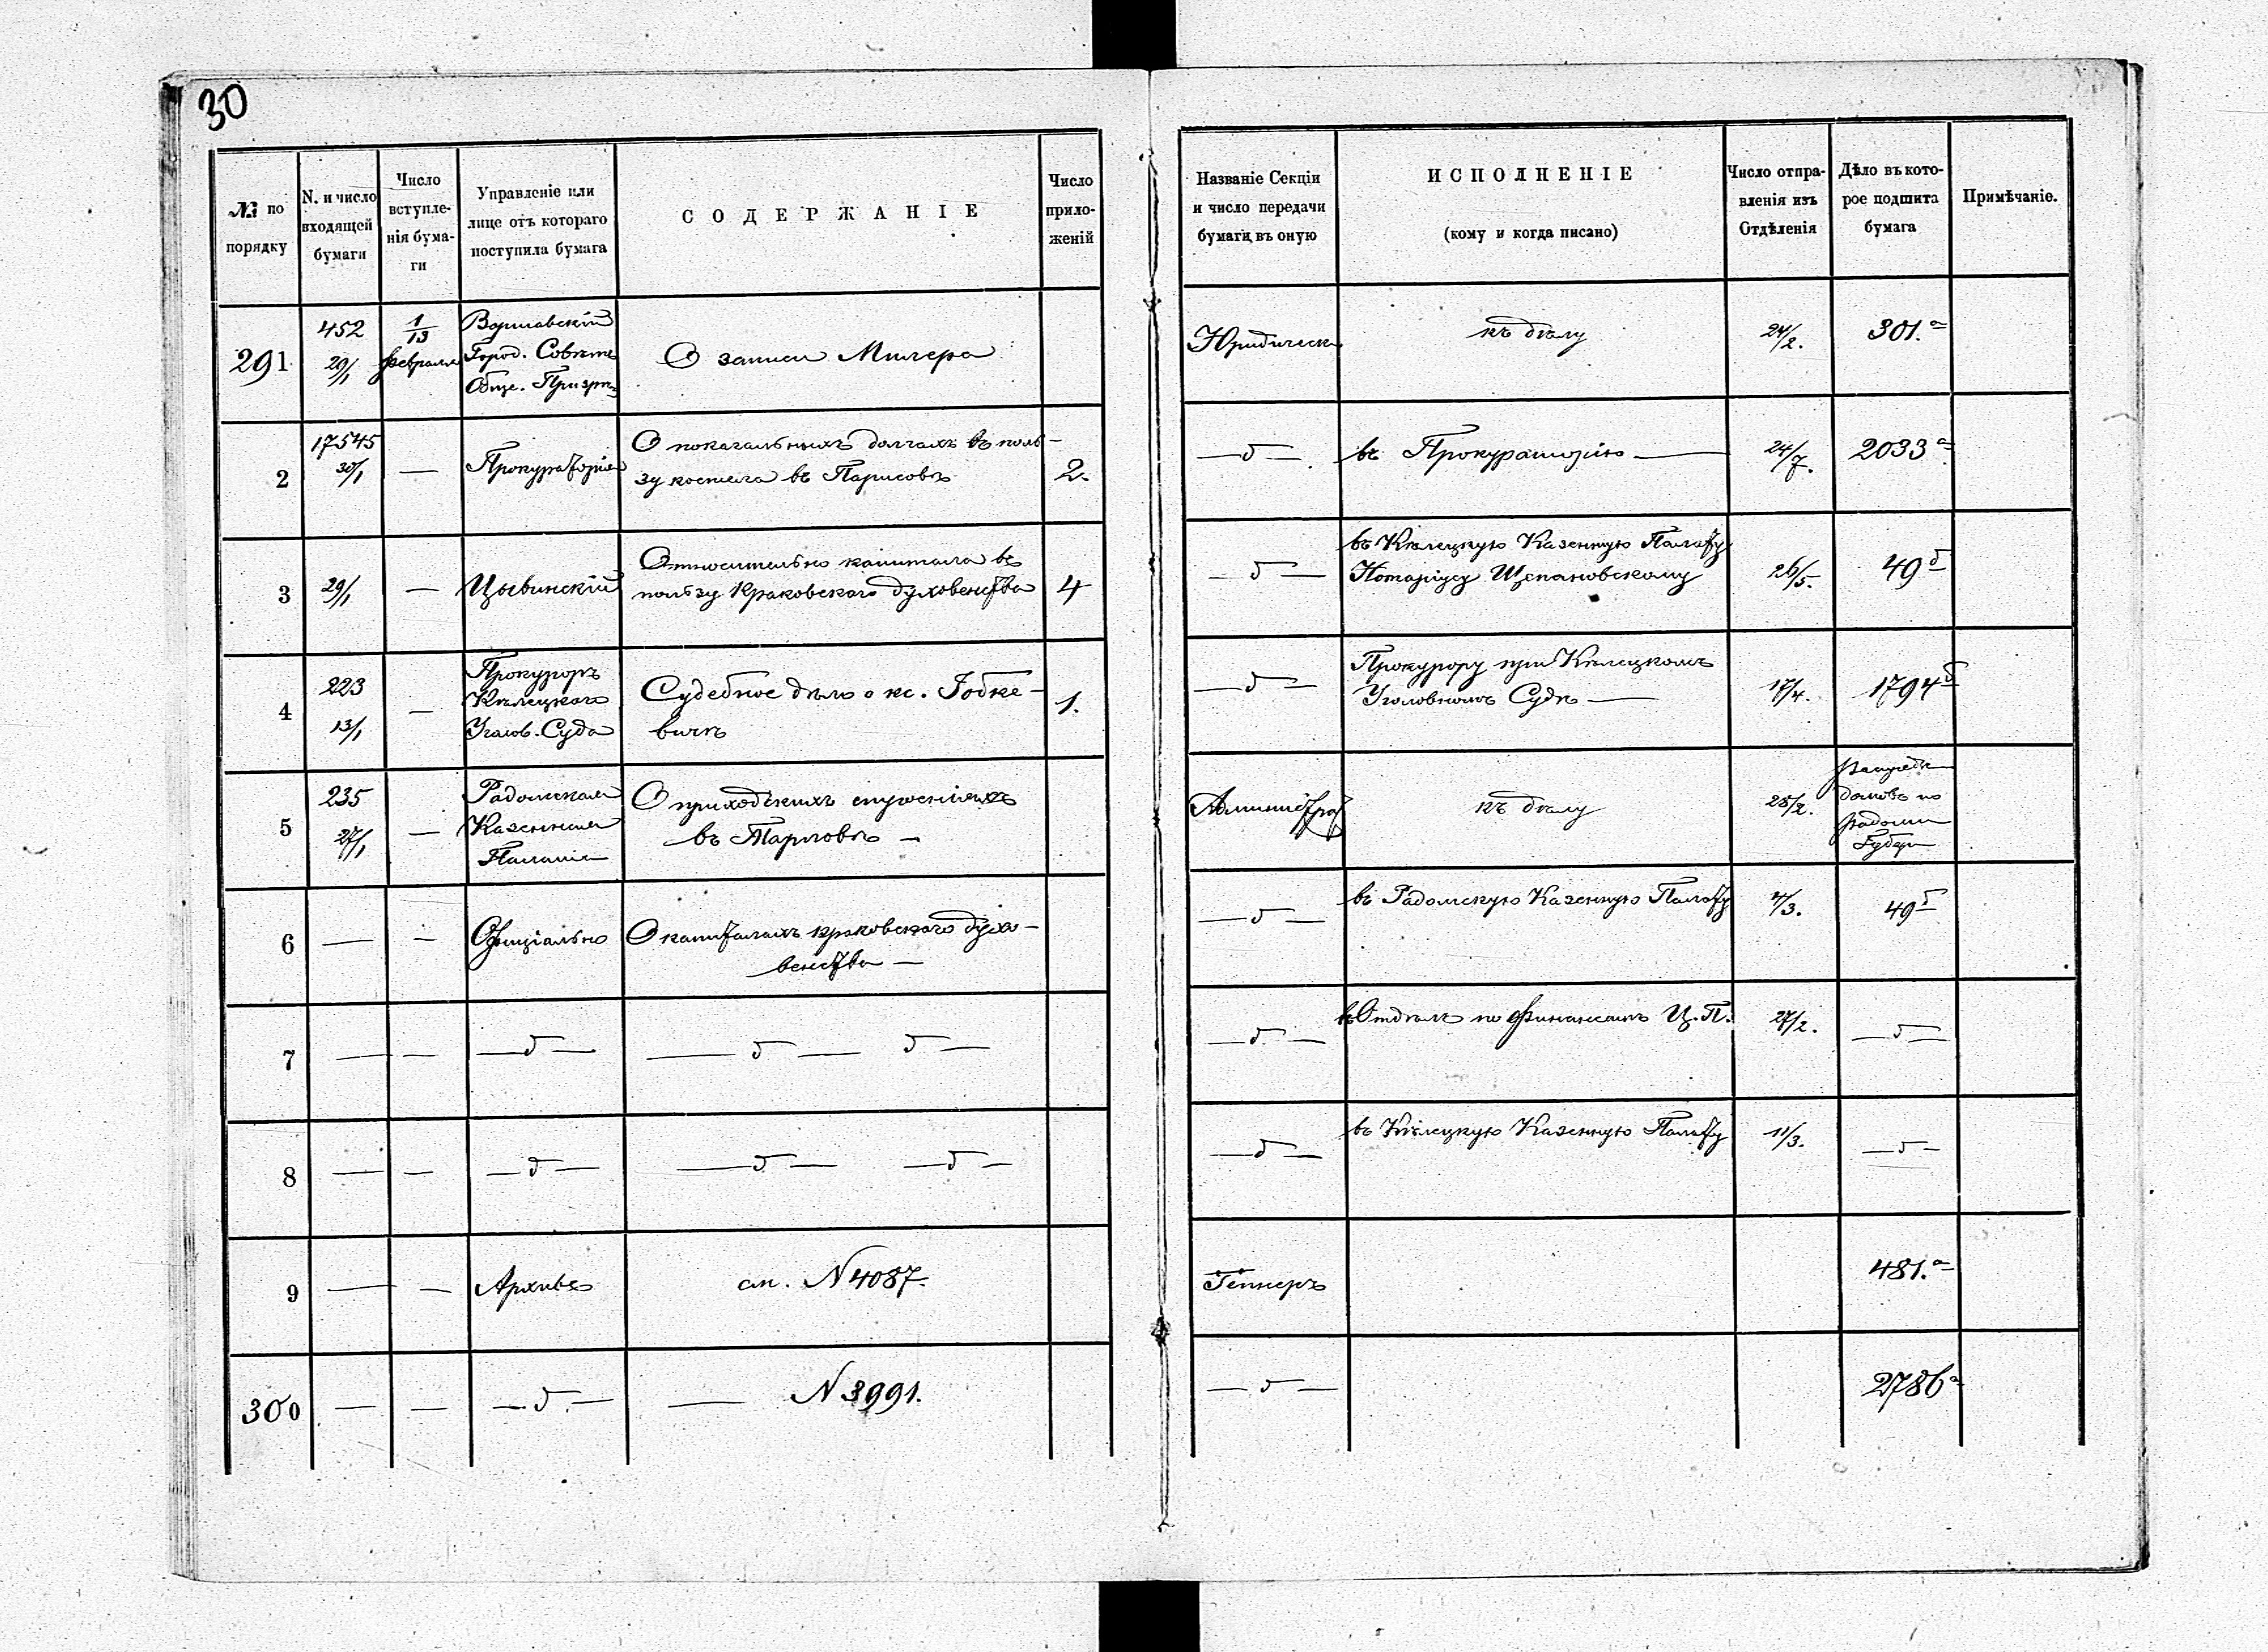 30
№ по порядку
N. и число входящей бумаги
Число вступле-нія бума-ги
Управленіе или лице отъ котораго поступила бумага
СОДЕРЖАНІЕ
Число прило-женій
Названіе Секціи и число передачи бумаги въ оную
ИСПОЛНЕНІЕ
(кому и когда писано)
Число отпра-вленія изъ Отдѣленія
Дѣло въ кото-рое подшита бумага
Примѣчаніе.
291
452
29/1
1/13
февраля
Варшавскій
Город. Совѣтъ
Обще. Призрѣ
О записи Милера
Юридическ
къ дѣлу
24/2.
301.а
2
17545
30/1
—
Прокураторія
О покагальныхъ долгахъ въ поль-
зу костела въ Парисовѣ
2.
—д—
въ Прокураторію —
24/7.
2033а
3
29/1
—
Цывинскій
Относительно капитала въ
пользу Краковскаго духовенства
4
—д—
въ Кѣлецкую Казенную Палату
Нотаріусу Щепановскому
26/5.
49б
4
223
13/1
—
Прокуроръ
Кѣлецкаго
Уголов. Суда
Судебное дѣло о кс. Гобке-
вичѣ
1.
—д—
Прокурору при Кѣлецкомъ
Уголовномъ Судѣ —
17/4.
1794б
5
235
27/1
—
Радомская
Казенная
Палата
О приходскихъ строеніяхъ
въ Тарловѣ —
Администрат
къ дѣлу
28/2.
домовъ по
Радом
Губер
6
—
—
Офиціально
О капиталахъ краковскаго духо-
венства —
—д—
въ Радомскую Казенную Палату
4/3.
49б
7
— —
—д—
—д— д—
—д—
въ Отдѣлъ по Финансамъ Ц. П.
27/2.
—д—
8
— —
—д—
—д— —д—
—д—
въ Кѣлецкую Казенную Палату
11/3.
—д—
9
— —
Архивъ
см. N 4087.
Геннеръ
481.а
300
— —
—д—
— N 3991.
—д—
2786а